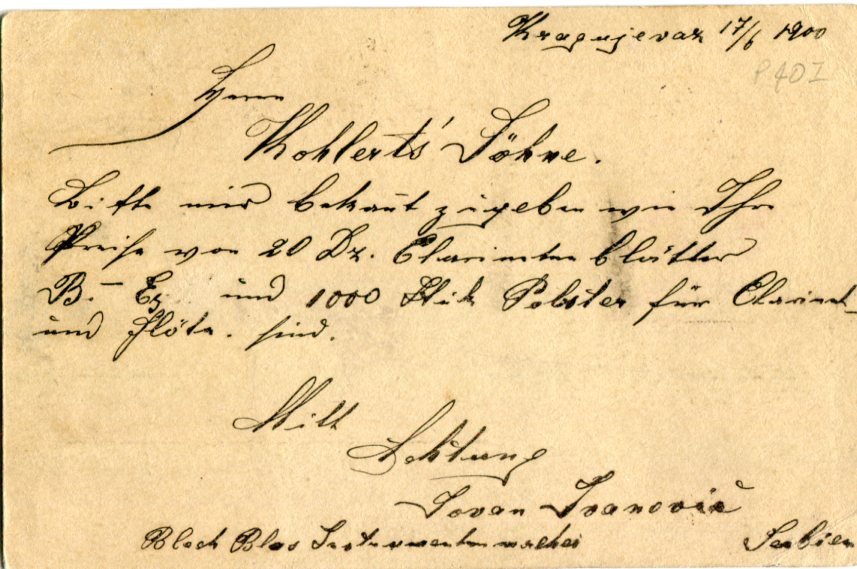 Kragujevaz 17/6 1900
P 40 I
Herrn
Kohlerts' Söhne.
Bitte mir bekant zugeben wie Ihre
Preise von 20 Dz. Clarineten blätter
B.- Es und 1000 Stik Polster für Clarinet
und Flöte. sind.
Mitt
Achtung
Jovan Ivanović
Blech Blas Instrumentenmacher Serbien